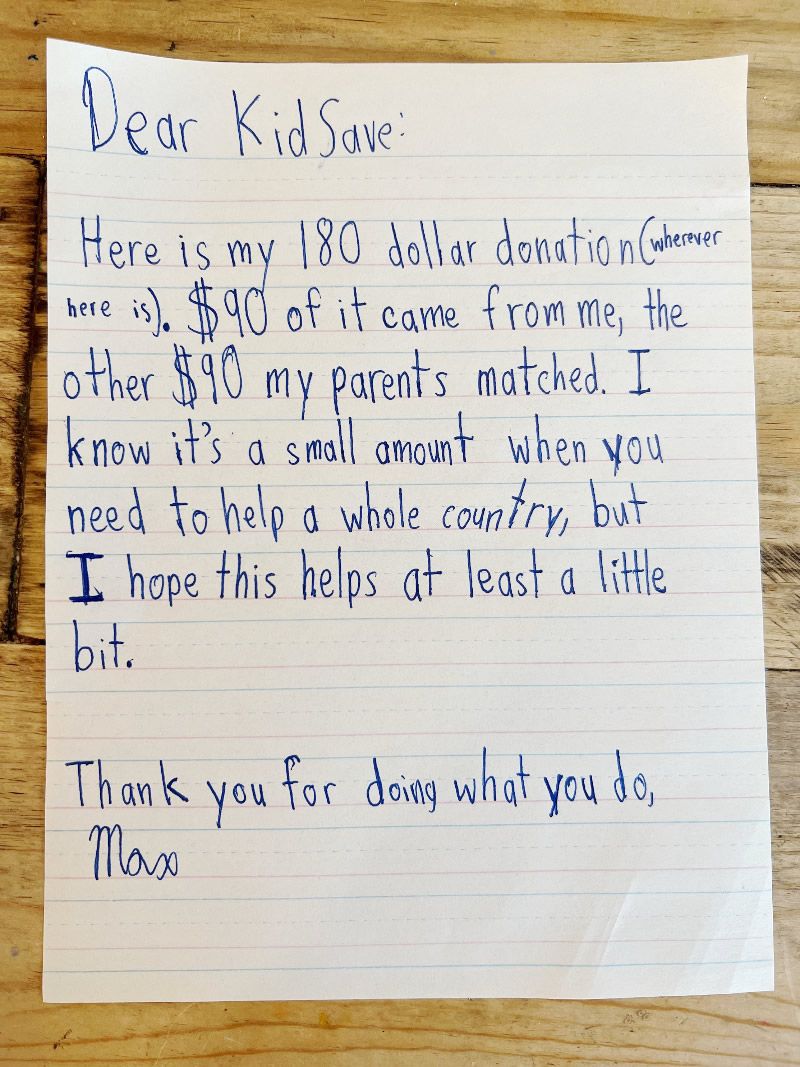 Dear KidSave:
Here is my 180 dollar donation(wherever
here is). $90 of it came from me, the
other $90 my parents matched. I
know it's a small amount when you
need to help a whole country, but
I hope this helps at least a little
bit.
Thank you for doing what you do,
Max